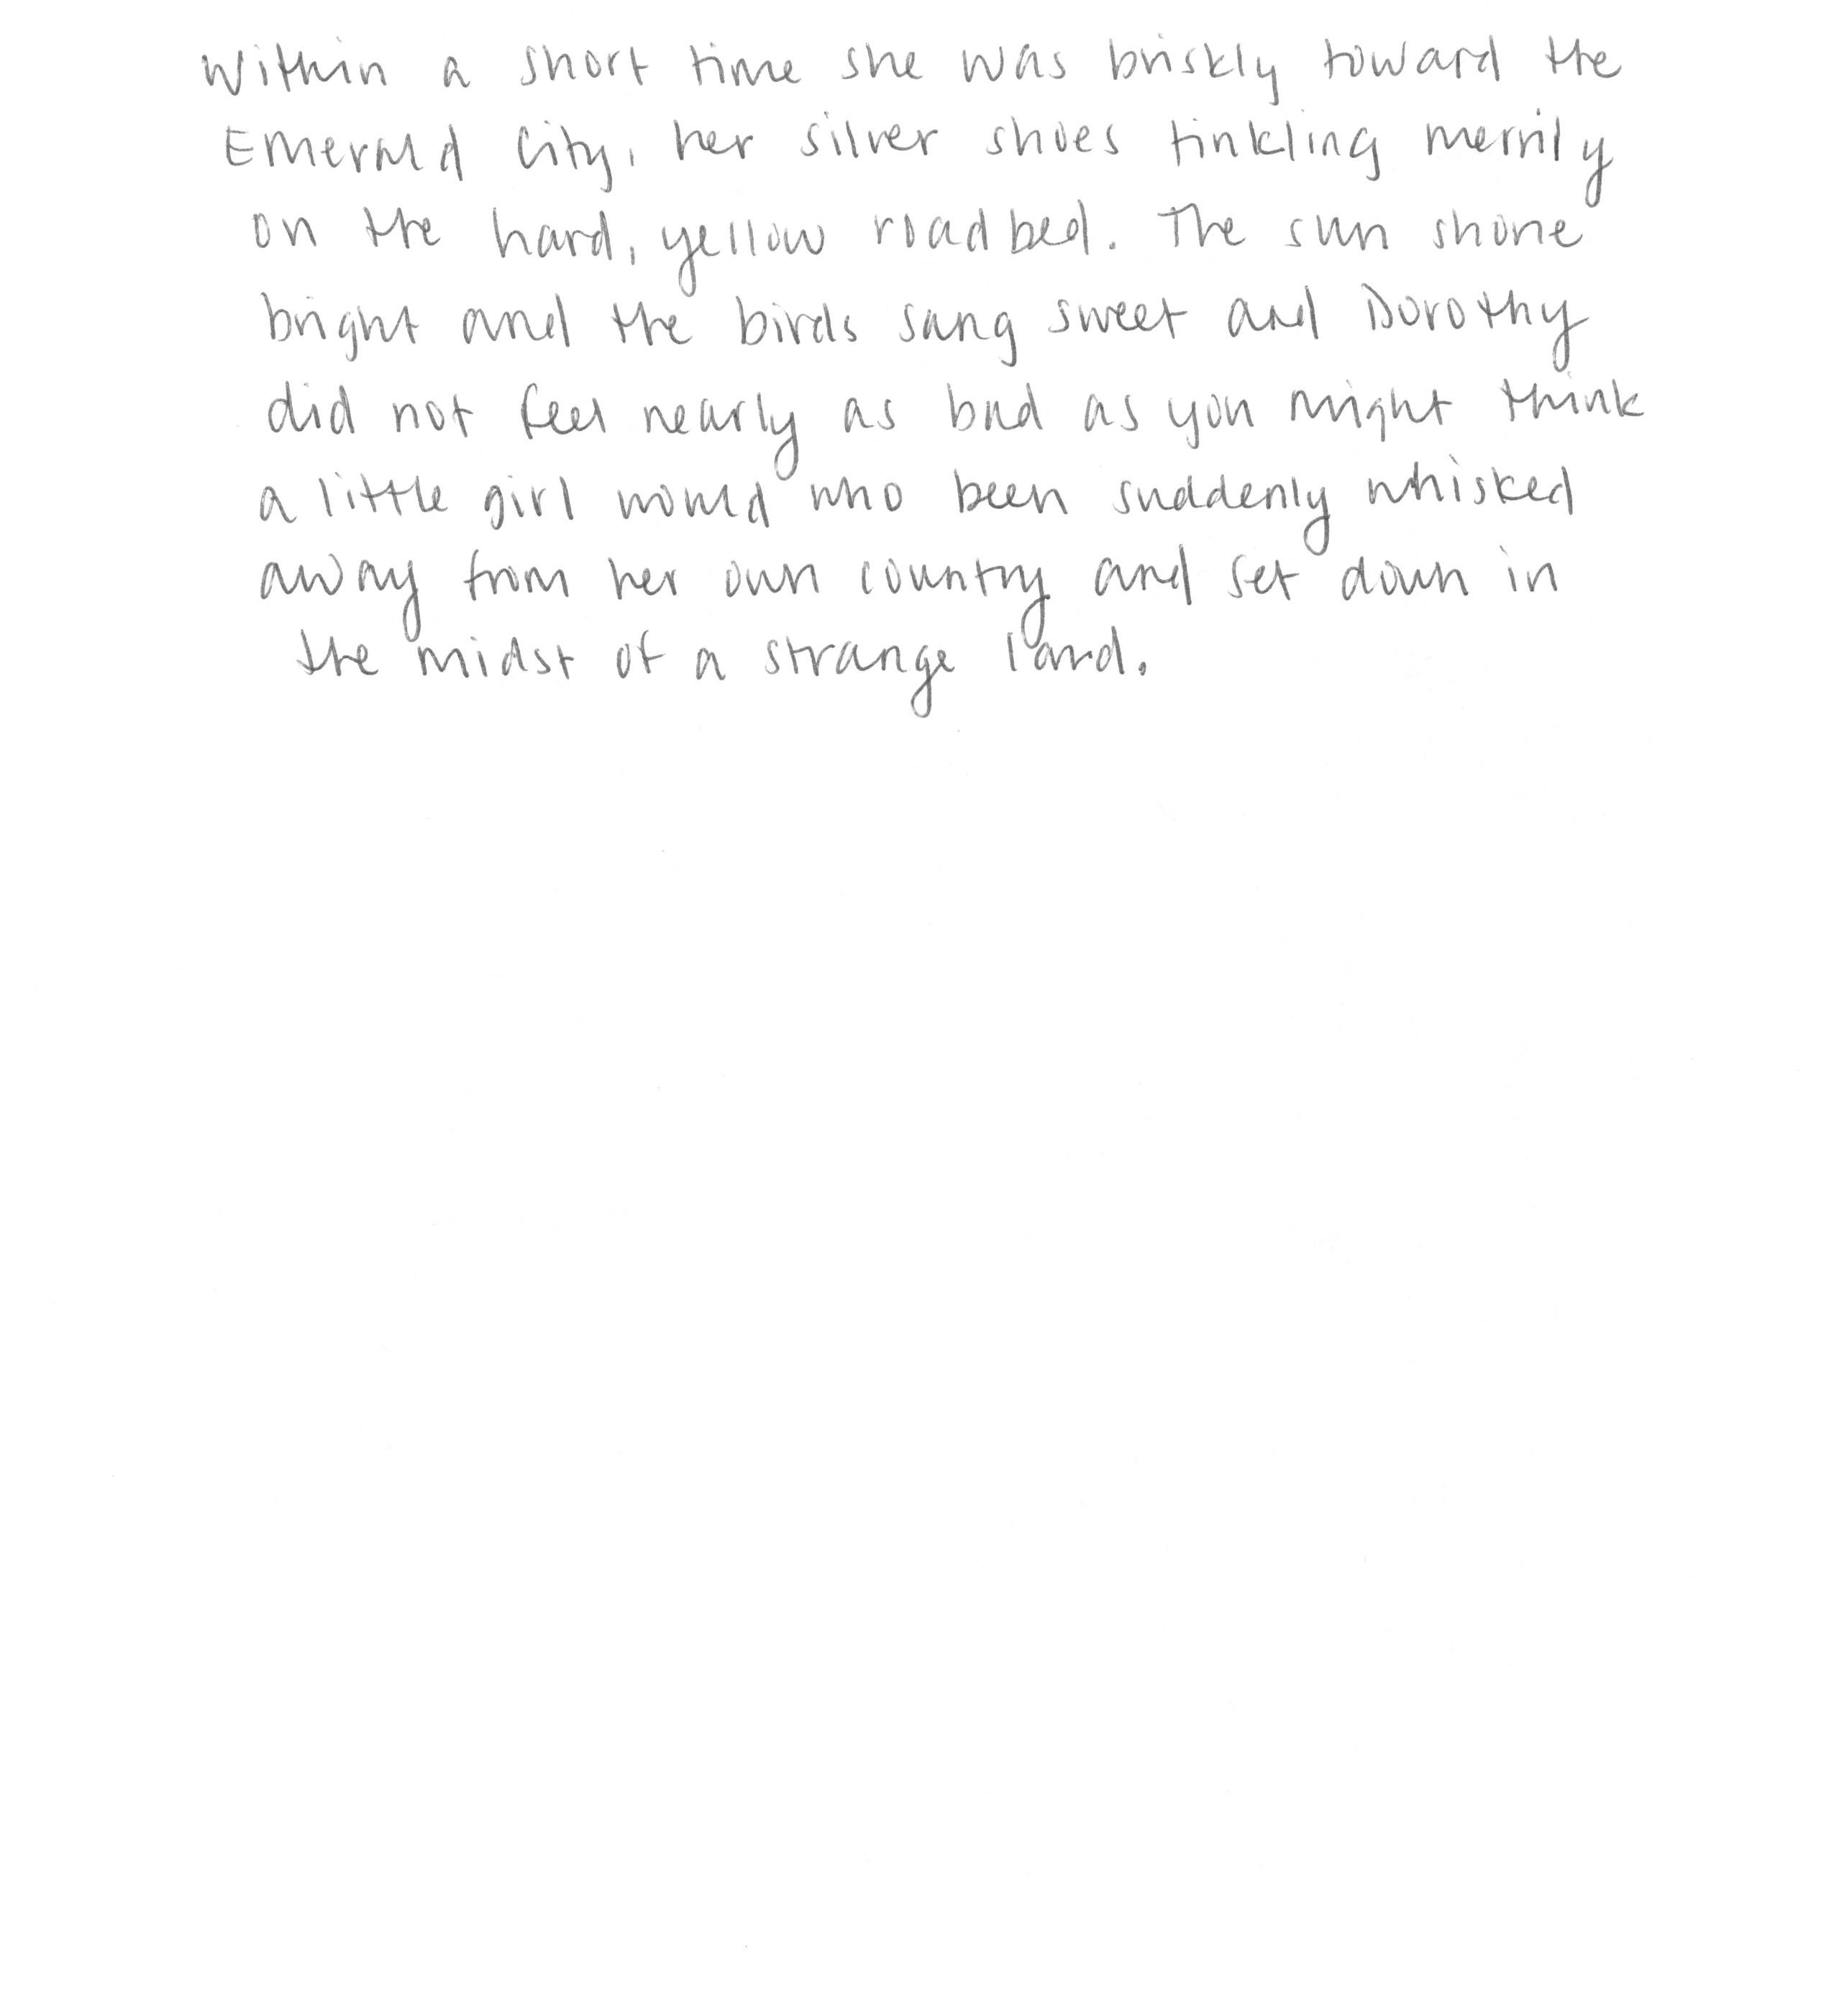 Within a short time she was briskly toward the
Emerald City, her silver shoes tinkling merrily
on the hard, yellow roadbed. The sun shone
bright and the birds sang sweet and Dorothy
did not feel nearly as bad as you might think
a little girl would who been suddenly whisked
away from her own country and set down in
the midst of a strange land.